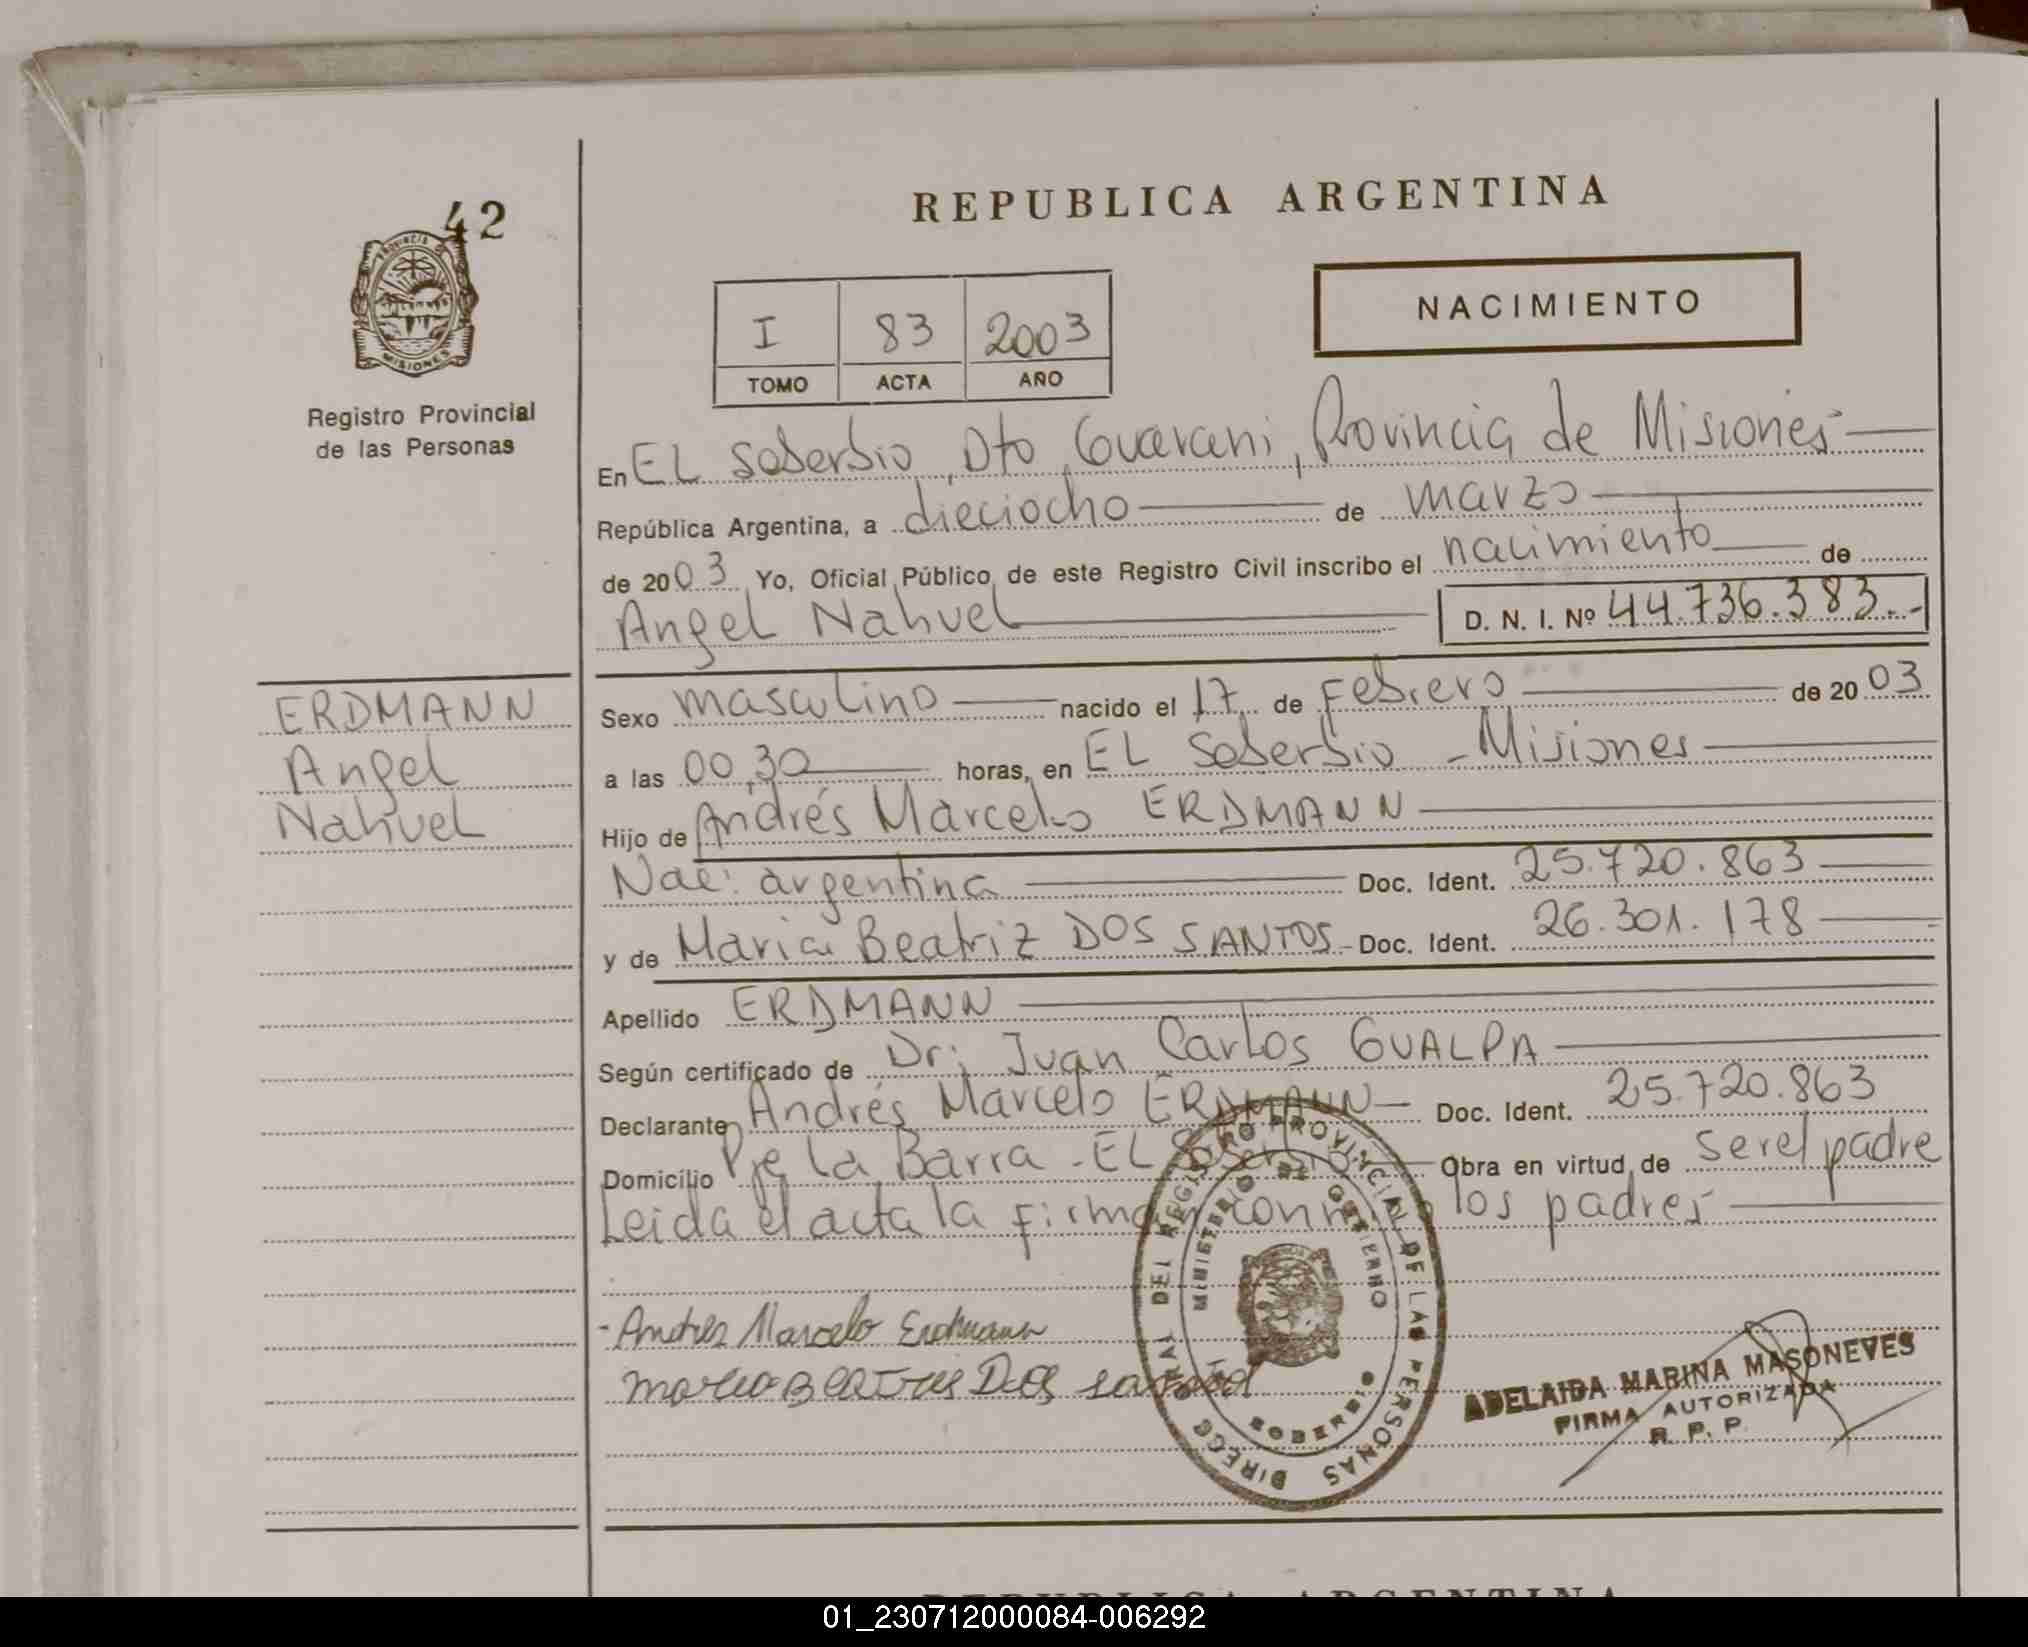 42
PROVINCIA DE
MISIONES
Registro Provincial
de las Personas
REPUBLICA ARGENTINA
NACIMIENTO
I 83 2003
TOMO ACTA AÑO
En EL Soberbio, Dto Guarani, Provincia de Misiones
República Argentina, a dieciocho de marzo
de 2003 Yo, Oficial Público de este Registro Civil inscribo el nacimiento de
Angel Nahuel D. N. I. Nº 44.736.383.-
ERDMANN
Angel
Nahuel
Sexo masculino nacido el 17 de Febrero de 2003
a las 00,30 horas, en EL Soberbio - Misiones
Hijo de Andrés Marcelo ERDMANN
Nac: argentina Doc. Ident. 25.720.863
y de Maria Beatriz DOS SANTOS - Doc. Ident. 26.301.178
Apellido ERDMANN
Según certificado de Dr: Juan Carlos GUALPA
Declarante Andrés Marcelo ERDMANN Doc. Ident. 25.720.863
Domicilio Pje La Barra - EL Soberbio Obra en virtud de ser el padre
Leida el acta la firman conmigo los padres
- Andres Marcelo Erdmann
DIRECC GRAL DEL REGISTRO PROVINCIAL DE LAS PERSONAS
MINISTERIO DE GOBIERNO
SOBERBIO
ADELAIDA MARINA MASONEVES
FIRMA AUTORIZADA
R. P. P.
REPUBLICA ARGENTINA
01_230712000084-006292